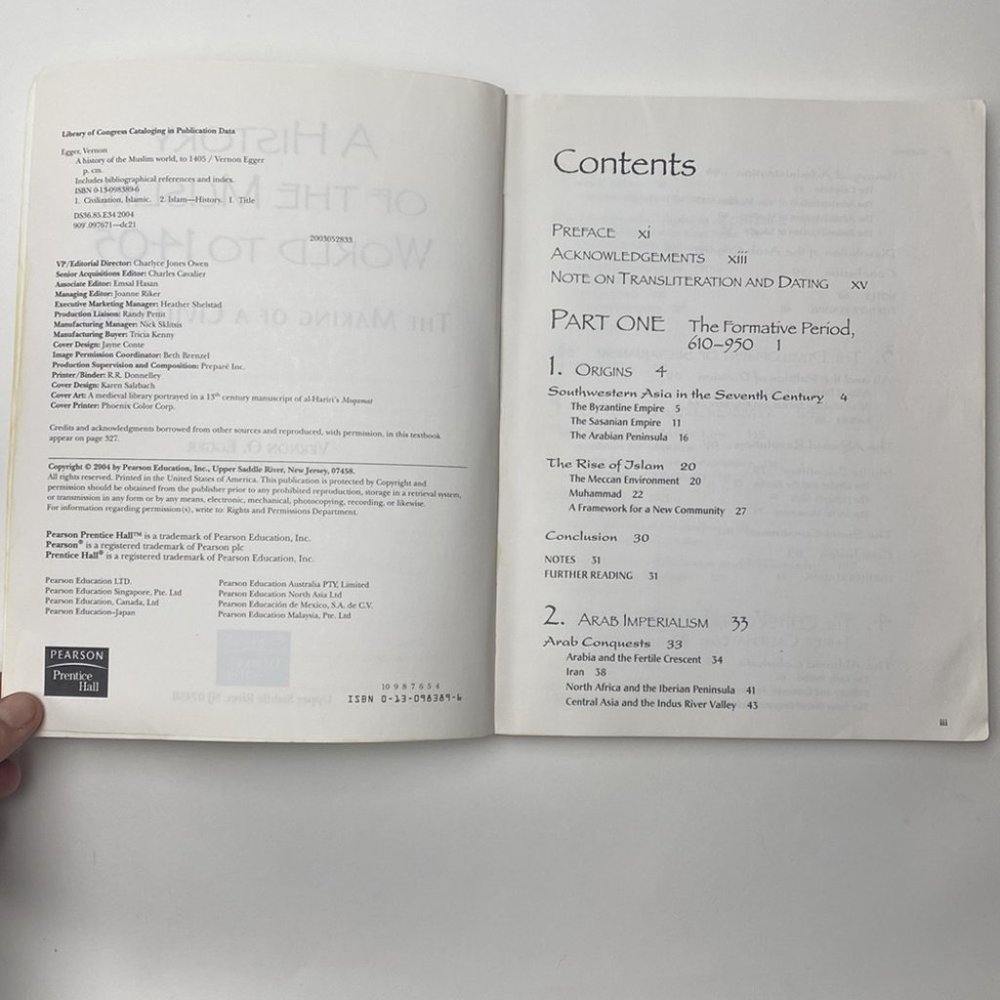 Library of Congress Cataloging in Publication Data
Egger, Vernon
A history of the Muslim world, to 1405 / Vernon Egger
p. cm.
Includes bibliographical references and index.
ISBN 0-13-098389-6
1. Civilization, Islamic. 2. Islam—History. I. Title
DS36.85.E34 2004
909'.097671—dc21
2003052833
VP/Editorial Director: Charlyce Jones Owen
Senior Acquisitions Editor: Charles Cavalier
Associate Editor: Emsal Hasan
Managing Editor: Joanne Riker
Executive Marketing Manager: Heather Shelstad
Production Liaison: Randy Pettit
Manufacturing Manager: Nick Sklitsis
Manufacturing Buyer: Tricia Kenny
Cover Design: Jayne Conte
Image Permission Coordinator: Beth Brenzel
Production Supervision and Composition: Preparé Inc.
Printer/Binder: R.R. Donnelley
Cover Design: Karen Salzbach
Cover Art: A medieval library portrayed in a 13th century manuscript of al-Hariri's Maqamat
Cover Printer: Phoenix Color Corp.
Credits and acknowledgments borrowed from other sources and reproduced, with permission, in this textbook
appear on page 327.
Copyright © 2004 by Pearson Education, Inc., Upper Saddle River, New Jersey, 07458.
All rights reserved. Printed in the United States of America. This publication is protected by Copyright and
permission should be obtained from the publisher prior to any prohibited reproduction, storage in a retrieval system,
or transmission in any form or by any means, electronic, mechanical, photocopying, recording, or likewise.
For information regarding permission(s), write to: Rights and Permissions Department.
Pearson Prentice Hall™ is a trademark of Pearson Education, Inc.
Pearson® is a registered trademark of Pearson plc
Prentice Hall® is a registered trademark of Pearson Education, Inc.
Pearson Education LTD.
Pearson Education Singapore, Pte. Ltd
Pearson Education, Canada, Ltd
Pearson Education–Japan
Pearson Education Australia PTY, Limited
Pearson Education North Asia Ltd
Pearson Educación de Mexico, S.A. de C.V.
Pearson Education Malaysia, Pte. Ltd
PEARSON
Prentice
Hall
10 9 8 7 6 5 4
ISBN 0-13-098389-6
Contents
PREFACE xi
ACKNOWLEDGEMENTS xiii
NOTE ON TRANSLITERATION AND DATING xv
PART ONE The Formative Period,
610–950 1
1. ORIGINS 4
Southwestern Asia in the Seventh Century 4
The Byzantine Empire 5
The Sasanian Empire 11
The Arabian Peninsula 16
The Rise of Islam 20
The Meccan Environment 20
Muhammad 22
A Framework for a New Community 27
Conclusion 30
NOTES 31
FURTHER READING 31
2. ARAB IMPERIALISM 33
Arab Conquests 33
Arabia and the Fertile Crescent 34
Iran 38
North Africa and the Iberian Peninsula 41
Central Asia and the Indus River Valley 43
iii